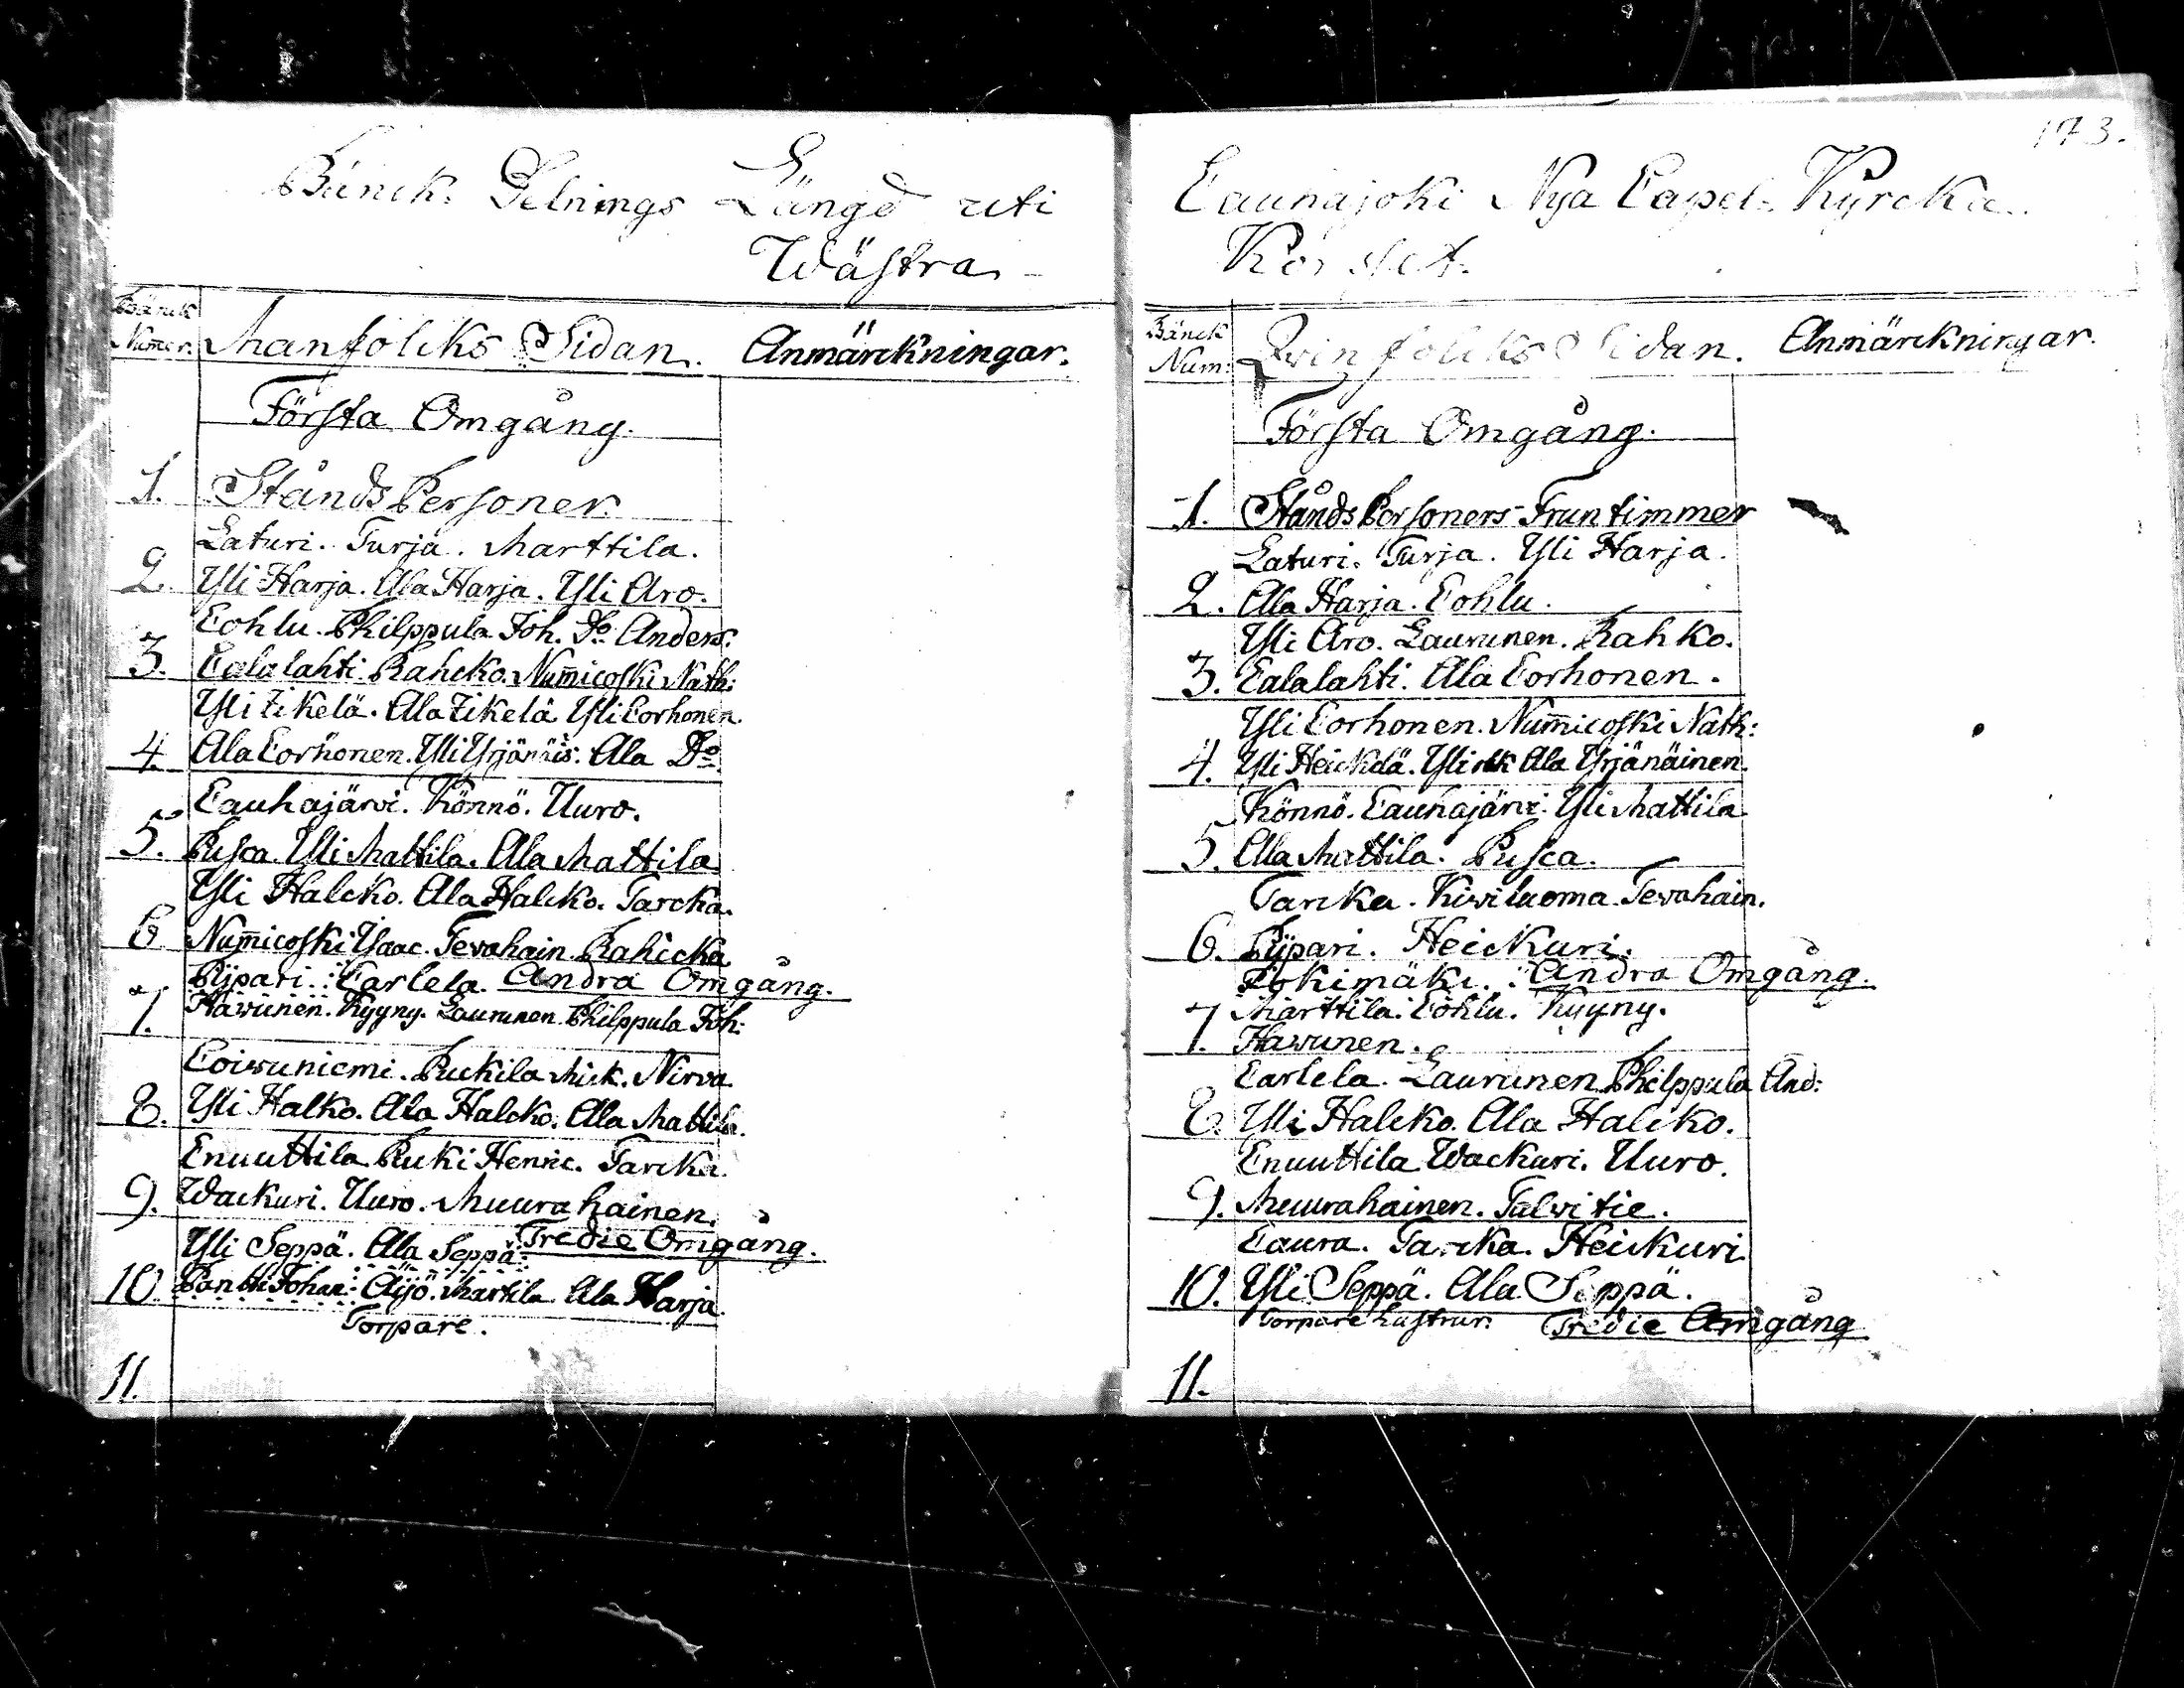 Bänck Delnings Längd uti
Wästra
Bänck Numer.
Manfolcks Sidan. Anmärckningar.
Första Omgång.
1. StåndsPersoner.
Laturi. Turja. Marttila.
2. Yli Harja. Ala Harja. Yli Aro.
Cohlu. Philppula Joh. Do Anders.
3. Calalahti. Rahcko. Num̄icoski Nath:
Yli Zikelä. Ala Zikelä Yli Corhonen.
4. Ala Corhonen. Yli Yrjänäis. Ala Do
Cauhajärvi. Könnö. Uuro.
5. Pusca. Yli Mattila. Ala Mattila
Yli Halcko. Ala Halcko. Tarcka.
6 Num̄icoski Ysaac. Tevahain. Rahicka
Pijpari. Carlela. Andra Omgång.
7. Hawunen. Kyyny. Laurunen Philppula Joh:
Coivuniemi. Puckila Mick. Nirva
8. Yli Halko. Ala Halcko. Ala Mattila.
Cnuuttila Pucki Henric. Tarcka.
9. Wackuri. Uuro. Muurahainen.
Yli Seppä. Ala Seppä: Tredie Omgång.
10 Pantti Johan: Äijö. Martila Ala Harja
Torpare.
11.
173.
Cauhajoki Nya Capel Kyrcka.
Korset.
Bänck Num:
Qvinfolcks Sidan. Anmärckningar.
Första Omgång.
1. StåndsPersoners Fruntimmer
Laturi. Turja. Yli Harja.
2. Ala Harja. Cohlu.
Yli Aro. Laurunen. Rahko.
3. Calalahti. Ala Corhonen.
Yli Corhonen. Num̄icoski Nath:
4. Yli Heickilä. Yli ock Ala Yrjänäinen.
Könnö. Cauhajärvi. Yli Mattila
5. Ala Mattila. Pusca.
Tarcka. Kiviluoma. Tevahain.
6. Pijpari. Heickuri.
Jokimäki. Andra Omgång.
Marttila. Cohlu. Kyyny.
7. Hawunen.
Carlela. Laurunen Philppula And:
8. Yli Halcko. Ala Halcko.
Cnuuttila Wackuri. Uuro.
9. Muurahainen. Talvitie.
Caura. Tarcka. Heickuri
10. Yli Seppä. Ala Seppä.
Torpare Hustrur: Tredie Omgång
11.